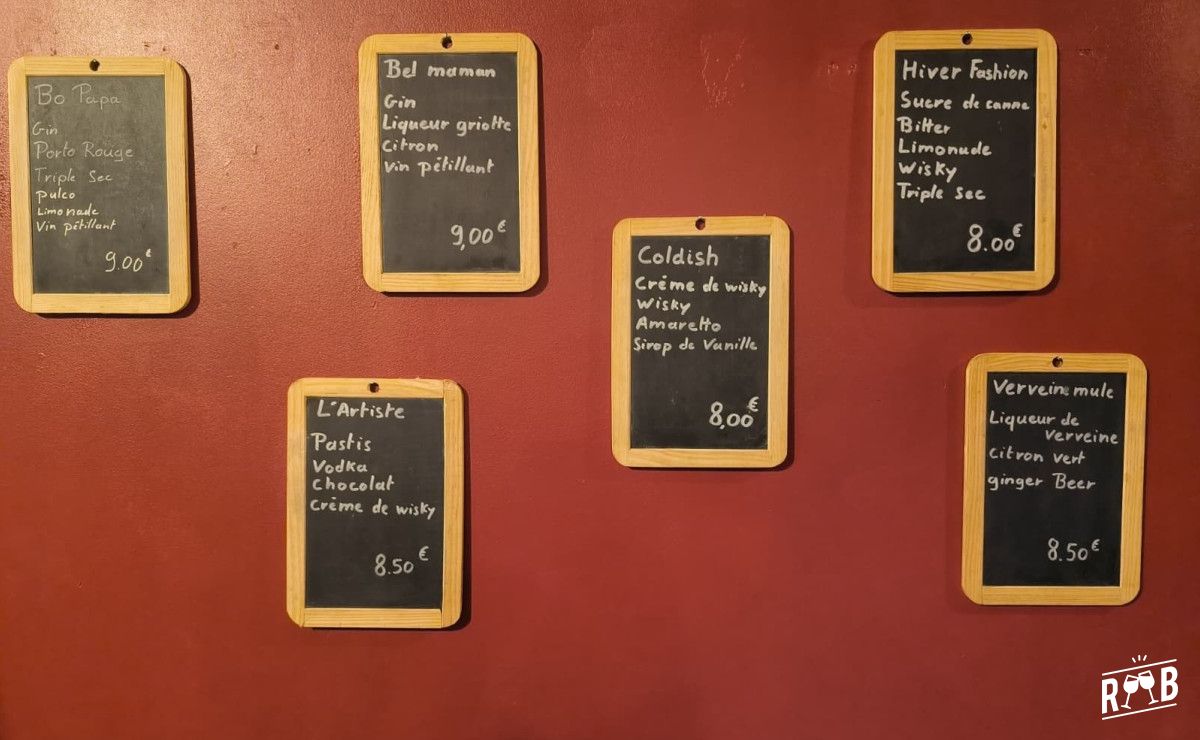 Bo Papa
Gin
Porto Rouge
Triple Sec
Pulco
Limonade
Vin pétillant
9.00€
Bel maman
Gin
Liqueur griotte
Citron
Vin pétillant
9,00€
Hiver Fashion
Sucre de canne
Bitter
Limonade
Wisky
Triple sec
8.00€
Coldish
Crème de wisky
Wisky
Amaretto
Sirop de Vanille
8,00€
L'Artiste
Pastis
Vodka
Chocolat
Crème de wisky
8.50€
Verveine mule
Liqueur de
verveine
Citron vert
ginger Beer
8.50€
R B